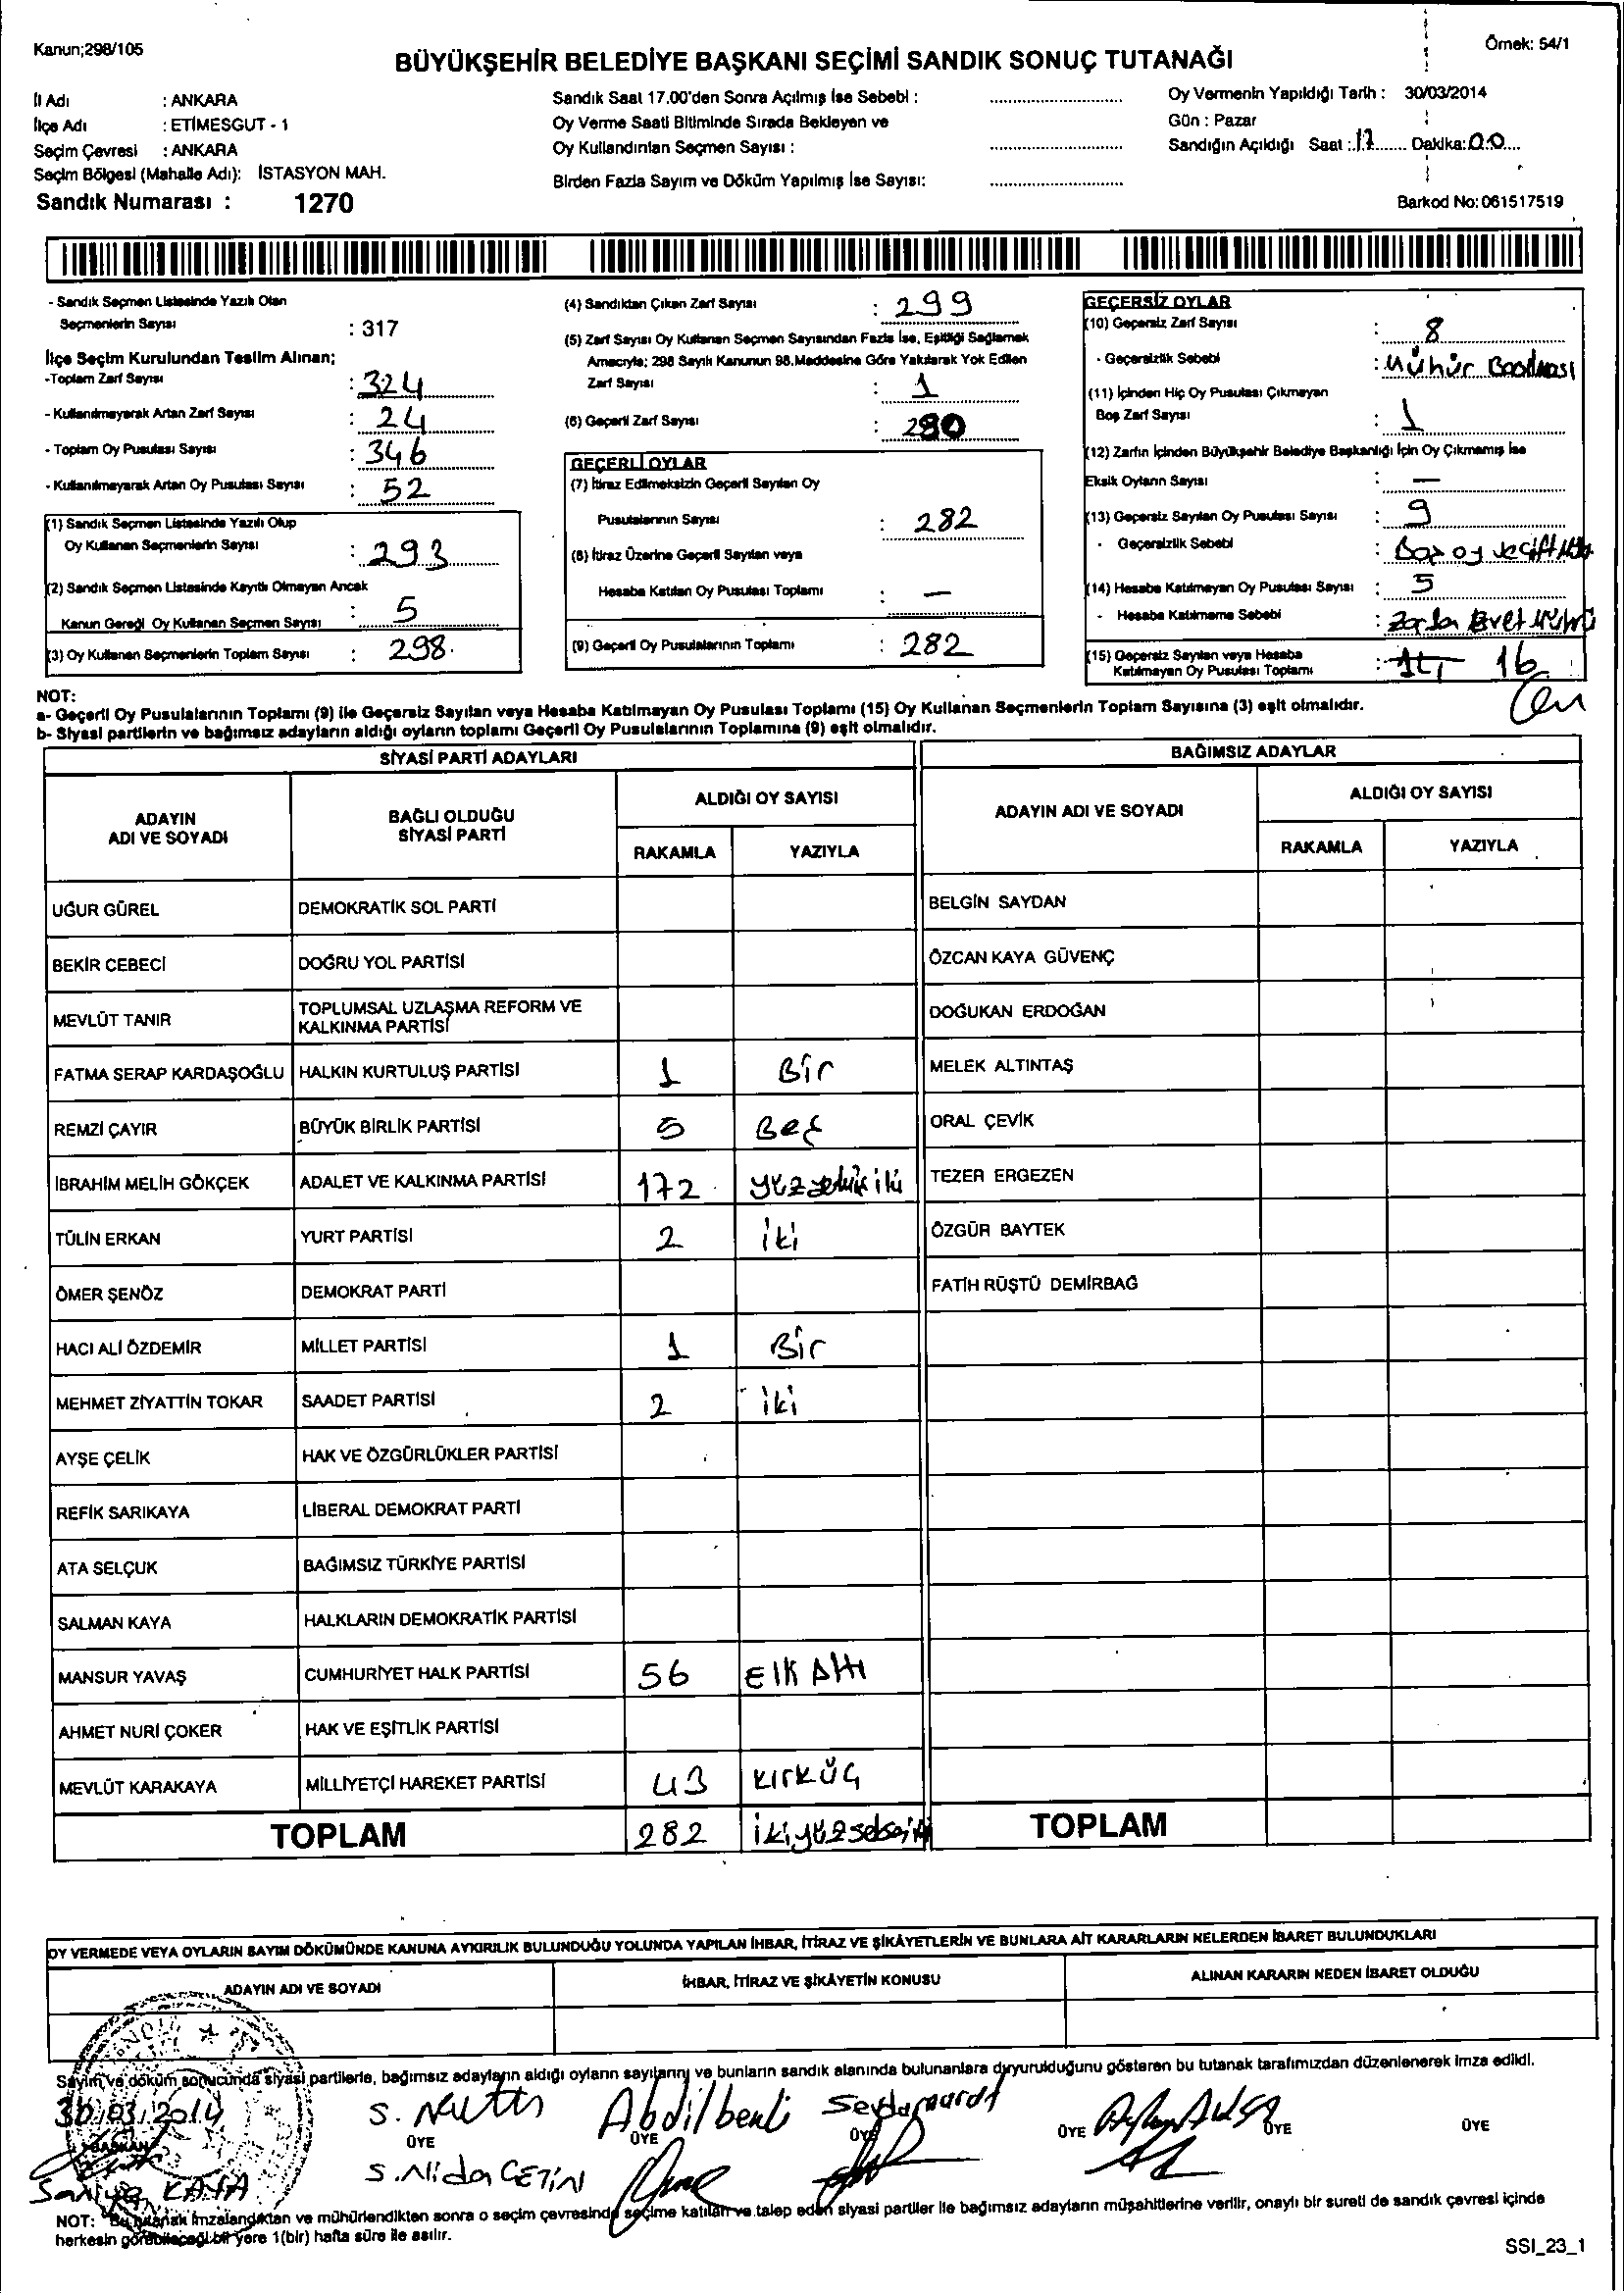 Kanun;298/105
Örnek: 54/1
BÜYÜKŞEHİR BELEDİYE BAŞKANI SEÇİMİ SANDIK SONUÇ TUTANAĞI
İl Adı : ANKARA
İlçe Adı : ETİMESGUT - 1
Seçim Çevresi : ANKARA
Seçim Bölgesi (Mahalle Adı): İSTASYON MAH.
Sandık Numarası : 1270
Sandık Saat 17.00'den Sonra Açılmış İse Sebebi : ........................
Oy Verme Saati Bitiminde Sırada Bekleyen ve
Oy Kullandırılan Seçmen Sayısı : ........................
Birden Fazla Sayım ve Döküm Yapılmış İse Sayısı: ........................
Oy Vermenin Yapıldığı Tarih : 30/03/2014
Gün : Pazar
Sandığın Açıldığı Saat : 17 Dakika: 00
Barkod No: 061517519
- Sandık Seçmen Listesinde Yazılı Olan
Seçmenlerin Sayısı : 317
İlçe Seçim Kurulundan Teslim Alınan;
-Toplam Zarf Sayısı : 324
- Kullanılmayarak Artan Zarf Sayısı : 24
- Toplam Oy Pusulası Sayısı : 346
- Kullanılmayarak Artan Oy Pusulası Sayısı : 52
(1) Sandık Seçmen Listesinde Yazılı Olup
Oy Kullanan Seçmenlerin Sayısı : 293
(2) Sandık Seçmen Listesinde Kayıtlı Olmayan Ancak
Kanun Gereği Oy Kullanan Seçmen Sayısı : 5
(3) Oy Kullanan Seçmenlerin Toplam Sayısı : 298
(4) Sandıktan Çıkan Zarf Sayısı : 299
(5) Zarf Sayısı Oy Kullanan Seçmen Sayısından Fazla İse, Eşitliği Sağlamak
Amacıyla; 298 Sayılı Kanunun 98.Maddesine Göre Yakılarak Yok Edilen
Zarf Sayısı : 1
(6) Geçerli Zarf Sayısı : 290
GEÇERLİ OYLAR
(7) İtiraz Edilmeksizin Geçerli Sayılan Oy
Pusulalarının Sayısı : 282
(8) İtiraz Üzerine Geçerli Sayılan veya
Hesaba Katılan Oy Pusulası Toplamı : —
(9) Geçerli Oy Pusulalarının Toplamı : 282
GEÇERSİZ OYLAR
(10) Geçersiz Zarf Sayısı : 8
- Geçersizlik Sebebi : Mühür Basılması
(11) İçinden Hiç Oy Pusulası Çıkmayan
Boş Zarf Sayısı : 1
(12) Zarfın İçinden Büyükşehir Belediye Başkanlığı İçin Oy Çıkmamış İse
Eksik Oyların Sayısı : —
(13) Geçersiz Sayılan Oy Pusulası Sayısı : 9
- Geçersizlik Sebebi : Boş oy ve çift
(14) Hesaba Katılmayan Oy Pusulası Sayısı : 5
- Hesaba Katılmama Sebebi : Zarfa Evet
(15) Geçersiz Sayılan veya Hesaba
Katılmayan Oy Pusulası Toplamı : 16
NOT:
a- Geçerli Oy Pusulalarının Toplamı (9) ile Geçersiz Sayılan veya Hesaba Katılmayan Oy Pusulası Toplamı (15) Oy Kullanan Seçmenlerin Toplam Sayısına (3) eşit olmalıdır.
b- Siyasi partilerin ve bağımsız adayların aldığı oyların toplamı Geçerli Oy Pusulalarının Toplamına (9) eşit olmalıdır.
SİYASİ PARTİ ADAYLARI
BAĞIMSIZ ADAYLAR
ADAYIN ADI VE SOYADI
BAĞLI OLDUĞU SİYASİ PARTİ
ALDIĞI OY SAYISI
RAKAMLA YAZIYLA
ADAYIN ADI VE SOYADI
ALDIĞI OY SAYISI
RAKAMLA YAZIYLA
UĞUR GÜREL DEMOKRATİK SOL PARTİ BELGİN SAYDAN
BEKİR CEBECİ DOĞRU YOL PARTİSİ ÖZCAN KAYA GÜVENÇ
MEVLÜT TANIR TOPLUMSAL UZLAŞMA REFORM VE KALKINMA PARTİSİ DOĞUKAN ERDOĞAN
FATMA SERAP KARDAŞOĞLU HALKIN KURTULUŞ PARTİSİ 1 Bir MELEK ALTINTAŞ
REMZİ ÇAYIR BÜYÜK BİRLİK PARTİSİ 5 Beş ORAL ÇEVİK
İBRAHİM MELİH GÖKÇEK ADALET VE KALKINMA PARTİSİ 172 yüzyetmişiki TEZER ERGEZEN
TÜLİN ERKAN YURT PARTİSİ 2 iki ÖZGÜR BAYTEK
ÖMER ŞENÖZ DEMOKRAT PARTİ FATİH RÜŞTÜ DEMİRBAĞ
HACI ALİ ÖZDEMİR MİLLET PARTİSİ 1 Bir
MEHMET ZİYATTİN TOKAR SAADET PARTİSİ 2 iki
AYŞE ÇELİK HAK VE ÖZGÜRLÜKLER PARTİSİ
REFİK SARIKAYA LİBERAL DEMOKRAT PARTİ
ATA SELÇUK BAĞIMSIZ TÜRKİYE PARTİSİ
SALMAN KAYA HALKLARIN DEMOKRATİK PARTİSİ
MANSUR YAVAŞ CUMHURİYET HALK PARTİSİ 56 Elli Altı
AHMET NURİ ÇOKER HAK VE EŞİTLİK PARTİSİ
MEVLÜT KARAKAYA MİLLİYETÇİ HAREKET PARTİSİ 43 KırkÜç
TOPLAM 282 ikiyüzsekseniki TOPLAM
OY VERMEDE VEYA OYLARIN SAYIM DÖKÜMÜNDE KANUNA AYKIRILIK BULUNDUĞU YOLUNDA YAPILAN İHBAR, İTİRAZ VE ŞİKÂYETLERİN VE BUNLARA AİT KARARLARIN NELERDEN İBARET BULUNDUKLARI
ADAYIN ADI VE SOYADI İHBAR, İTİRAZ VE ŞİKÂYETİN KONUSU ALINAN KARARIN NEDEN İBARET OLDUĞU
Sayım ve döküm sonucunda siyasi partilerle, bağımsız adayların aldığı oyların sayılarını ve bunların sandık alanında bulunanlara duyurulduğunu gösteren bu tutanak tarafımızdan düzenlenerek imza edildi.
30/03/2014
BAŞKAN ÜYE ÜYE ÜYE ÜYE ÜYE ÜYE
Saniye KAYA S. Nida ÇETİN
NOT: Bu tutanak imzalandıktan ve mühürlendikten sonra o seçim çevresinde seçime katılan ve talep eden siyasi partiler ile bağımsız adayların müşahitlerine verilir, onaylı bir sureti de sandık çevresi içinde
herkesin görebileceği bir yere 1(bir) hafta süre ile asılır.
SSI_23_1